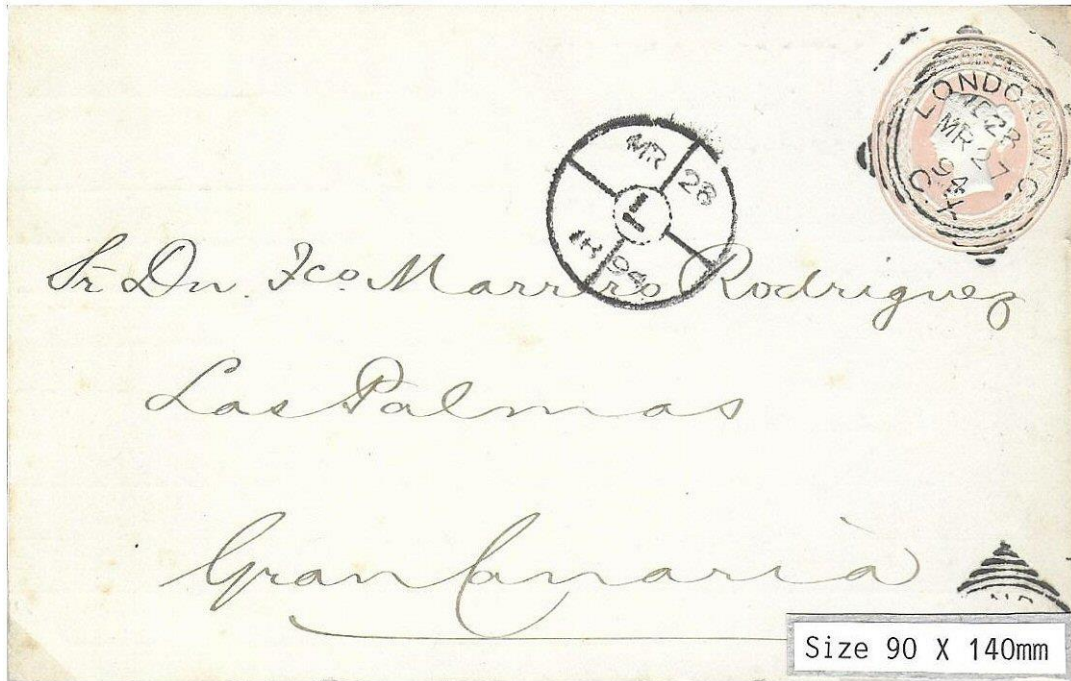 LONDON
MR 27
94
MR 28
L
94
Sr. Dn. Fco. Marrero Rodriguez
Las Palmas
Gran Canaria
Size 90 X 140mm